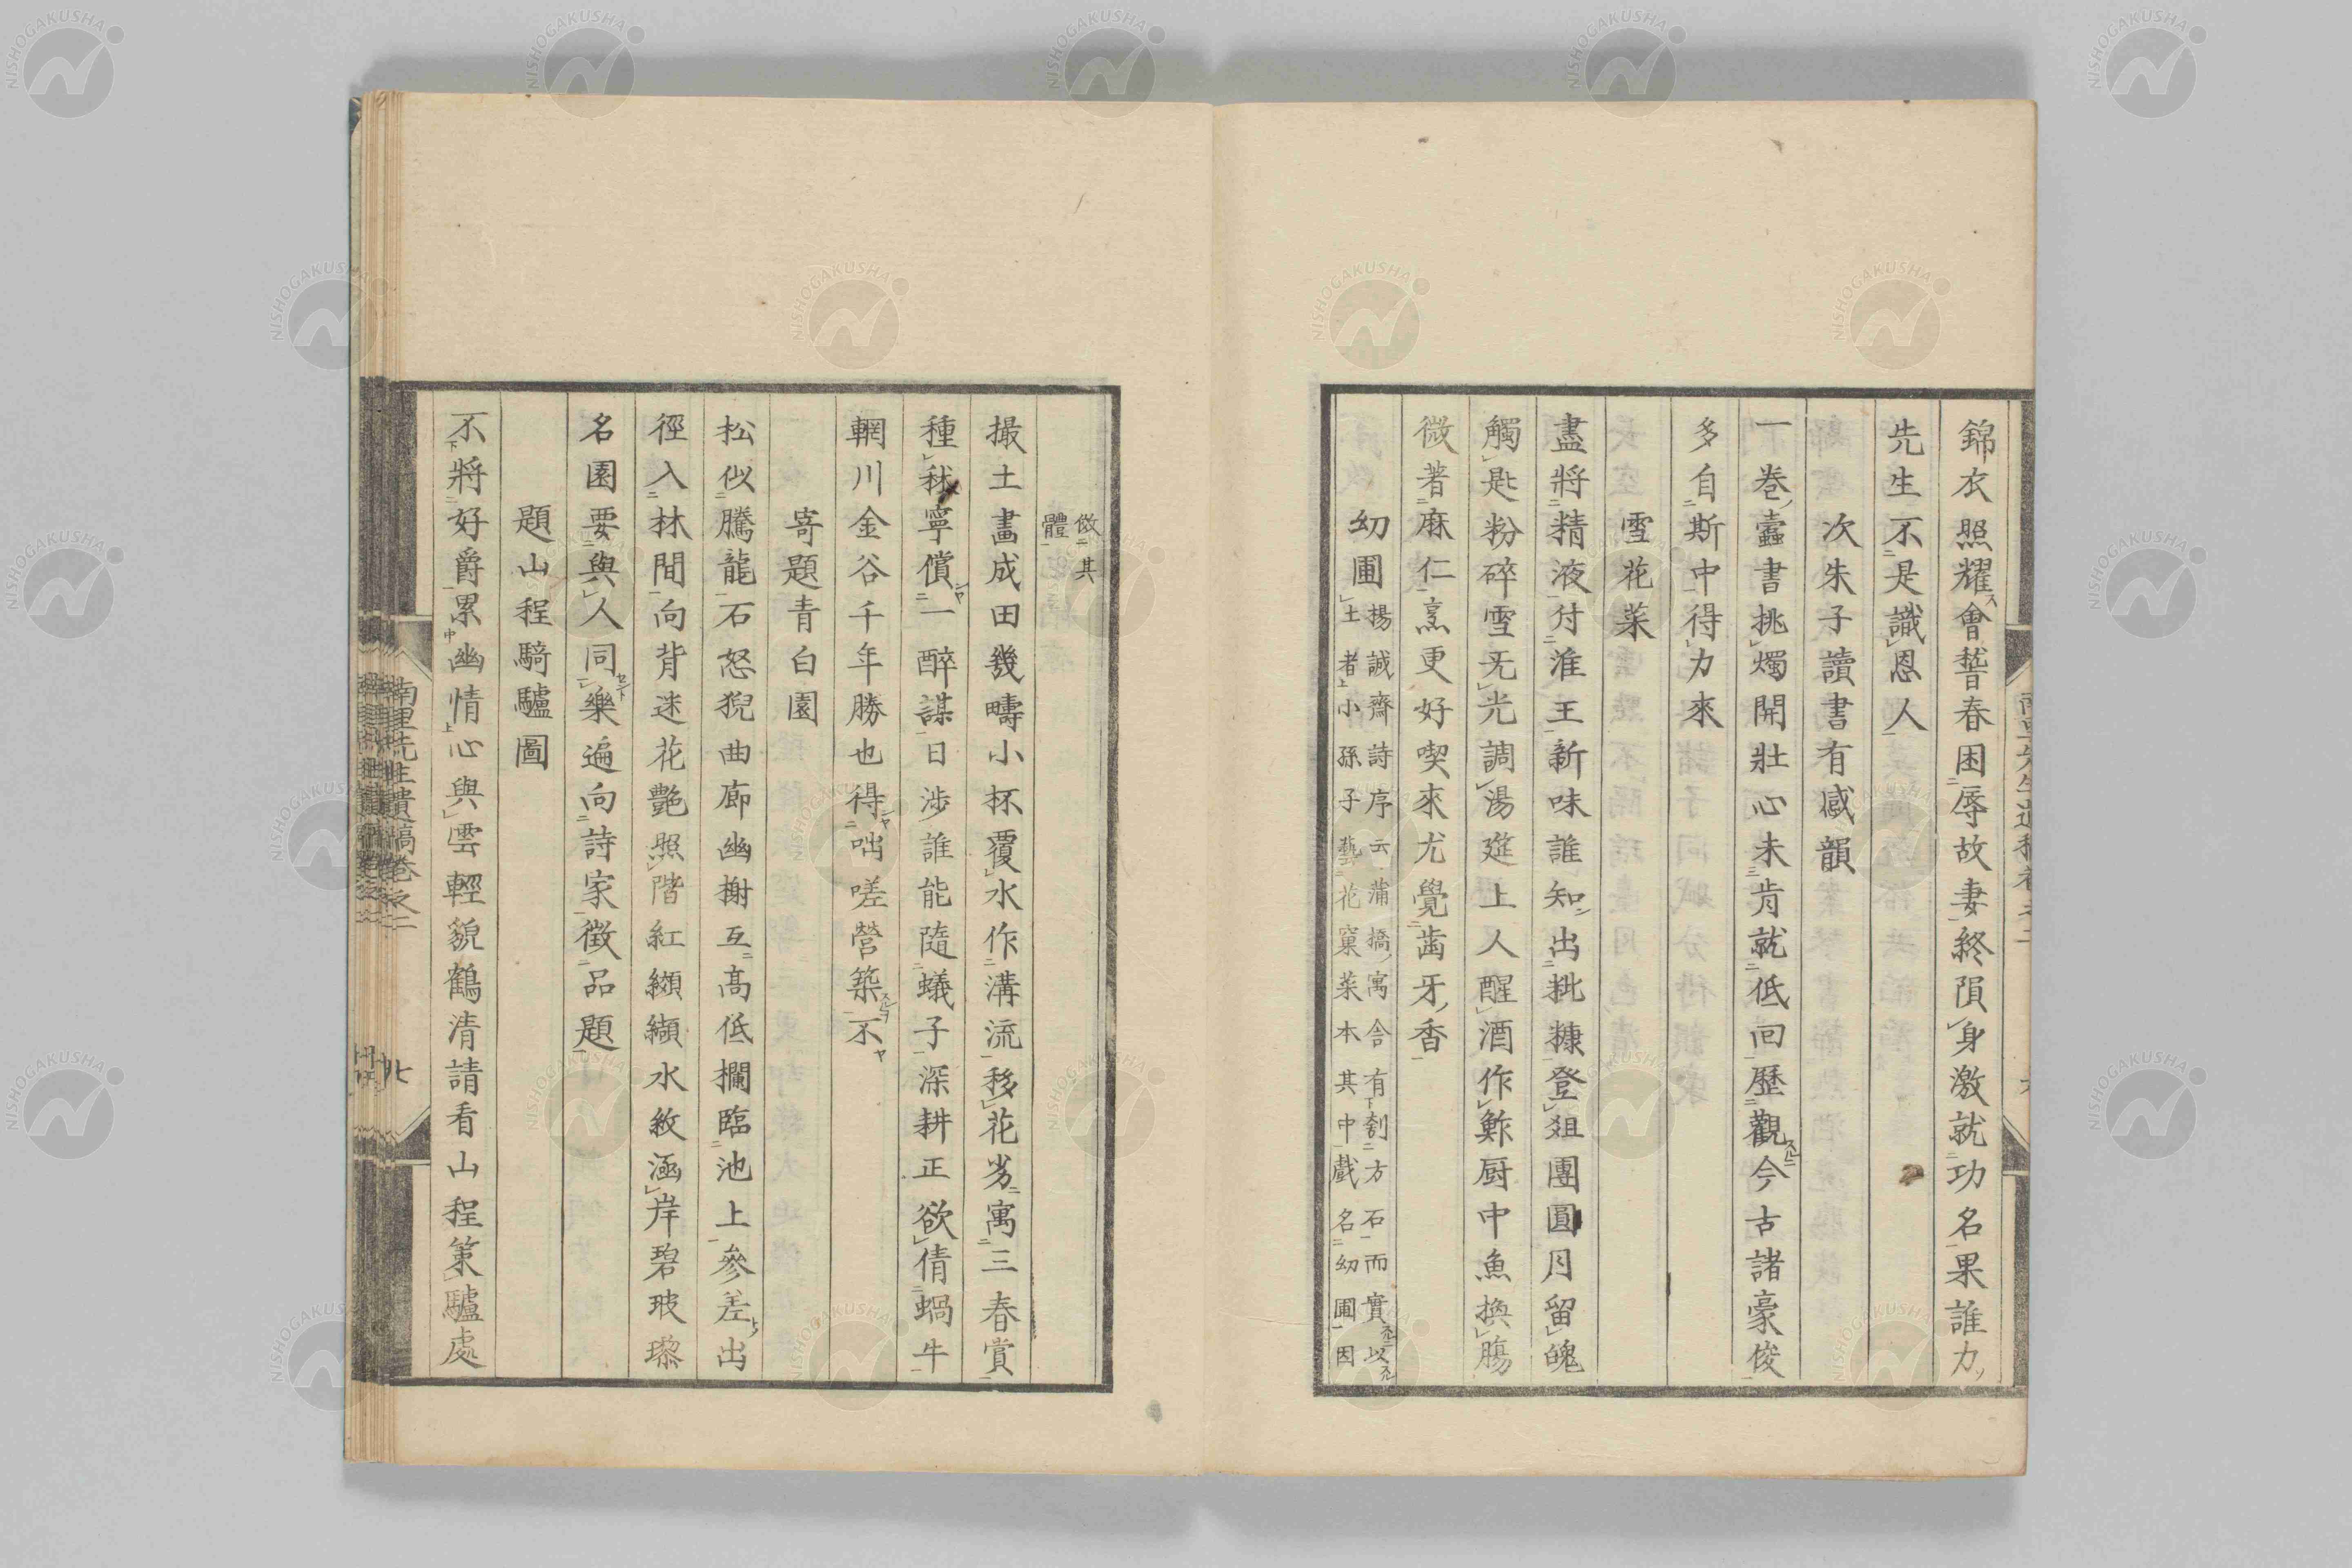 錦衣照耀會稽春困辱故妻終隕身激就功名果誰力
先生不是識恩人
次朱子讀書有感韻
一卷蠹書挑燭開壯心未肯就低回歷觀今古諸豪俊
多自斯中得力來
雪花菜
盡將精液付淮王新味誰知出粃糠登俎團圓月留魄
觸匙粉碎雪无光調湯筵上人醒酒作鮓厨中魚換腸
微著麻仁烹更好喫來尤覺齒牙香
幼圃
揚誠齋詩序云蒲橋寓舍有刳方石而實以
土者小孫子藝花窠菜本其中戲名幼圃因
倣其
體
撮土畫成田幾疇小杯覆水作溝流移花劣寓三春賞
種秫寧償一醉謀日涉誰能隨蟻子深耕正欲倩蝸牛
輞川金谷千年勝也得咄嗟營築不
寄題青白園
松似騰龍石怒猊曲廊幽榭互高低欄臨池上參差出
徑入林間向背迷花艷照階紅纈纈水紋涵岸碧玻瓈
名園要與人同樂遍向詩家徵品題
題山程騎驢圖
不將好爵累幽情心與雲輕貌鶴清請看山程策驢處
南里先生遺稿卷之二
七
NISHOGAKUSHA